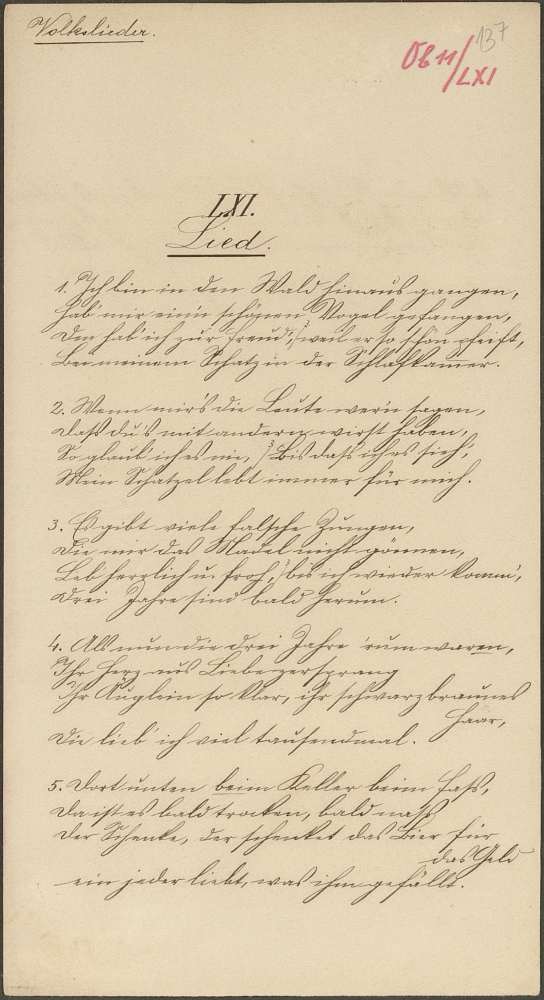 Volkslieder.
137
Ob 11/LXI
LXI.
Lied.
1. Ich bin in den Wald hinausgangen,
Hab' mir ein'n schönen Vogel gefangen,
Den hab' ich zur Freud', weil er so schön pfeift,
Bei meinem Schatz in der Schlafkammer.
2. Wenn mir's die Leute wer'n sagen,
Dass du's mit andern wirst haben,
So glaub' ich es nie, bis dass ich es sieh',
Mein Schatzel lebt immer für mich.
3. Es gibt viele falsche Zungen,
Die mir das Madel nicht gönnen,
Leb herzlich u. froh, bis ich wieder komm',
Drei Jahre sind bald herum.
4. Als nun die drei Jahre 'rum waren,
Ihr Herz aus Liebe zersprang
Ihr Äuglein so klar, ihr schwarzbraunes
Haar,
Die lieb' ich viel tausendmal.
5. Dort unten beim Keller beim Fass,
Da ist es bald trocken, bald nass
Der Schenke, der schenket das Bier für
das Geld
ein jeder liebt, was ihm gefällt.